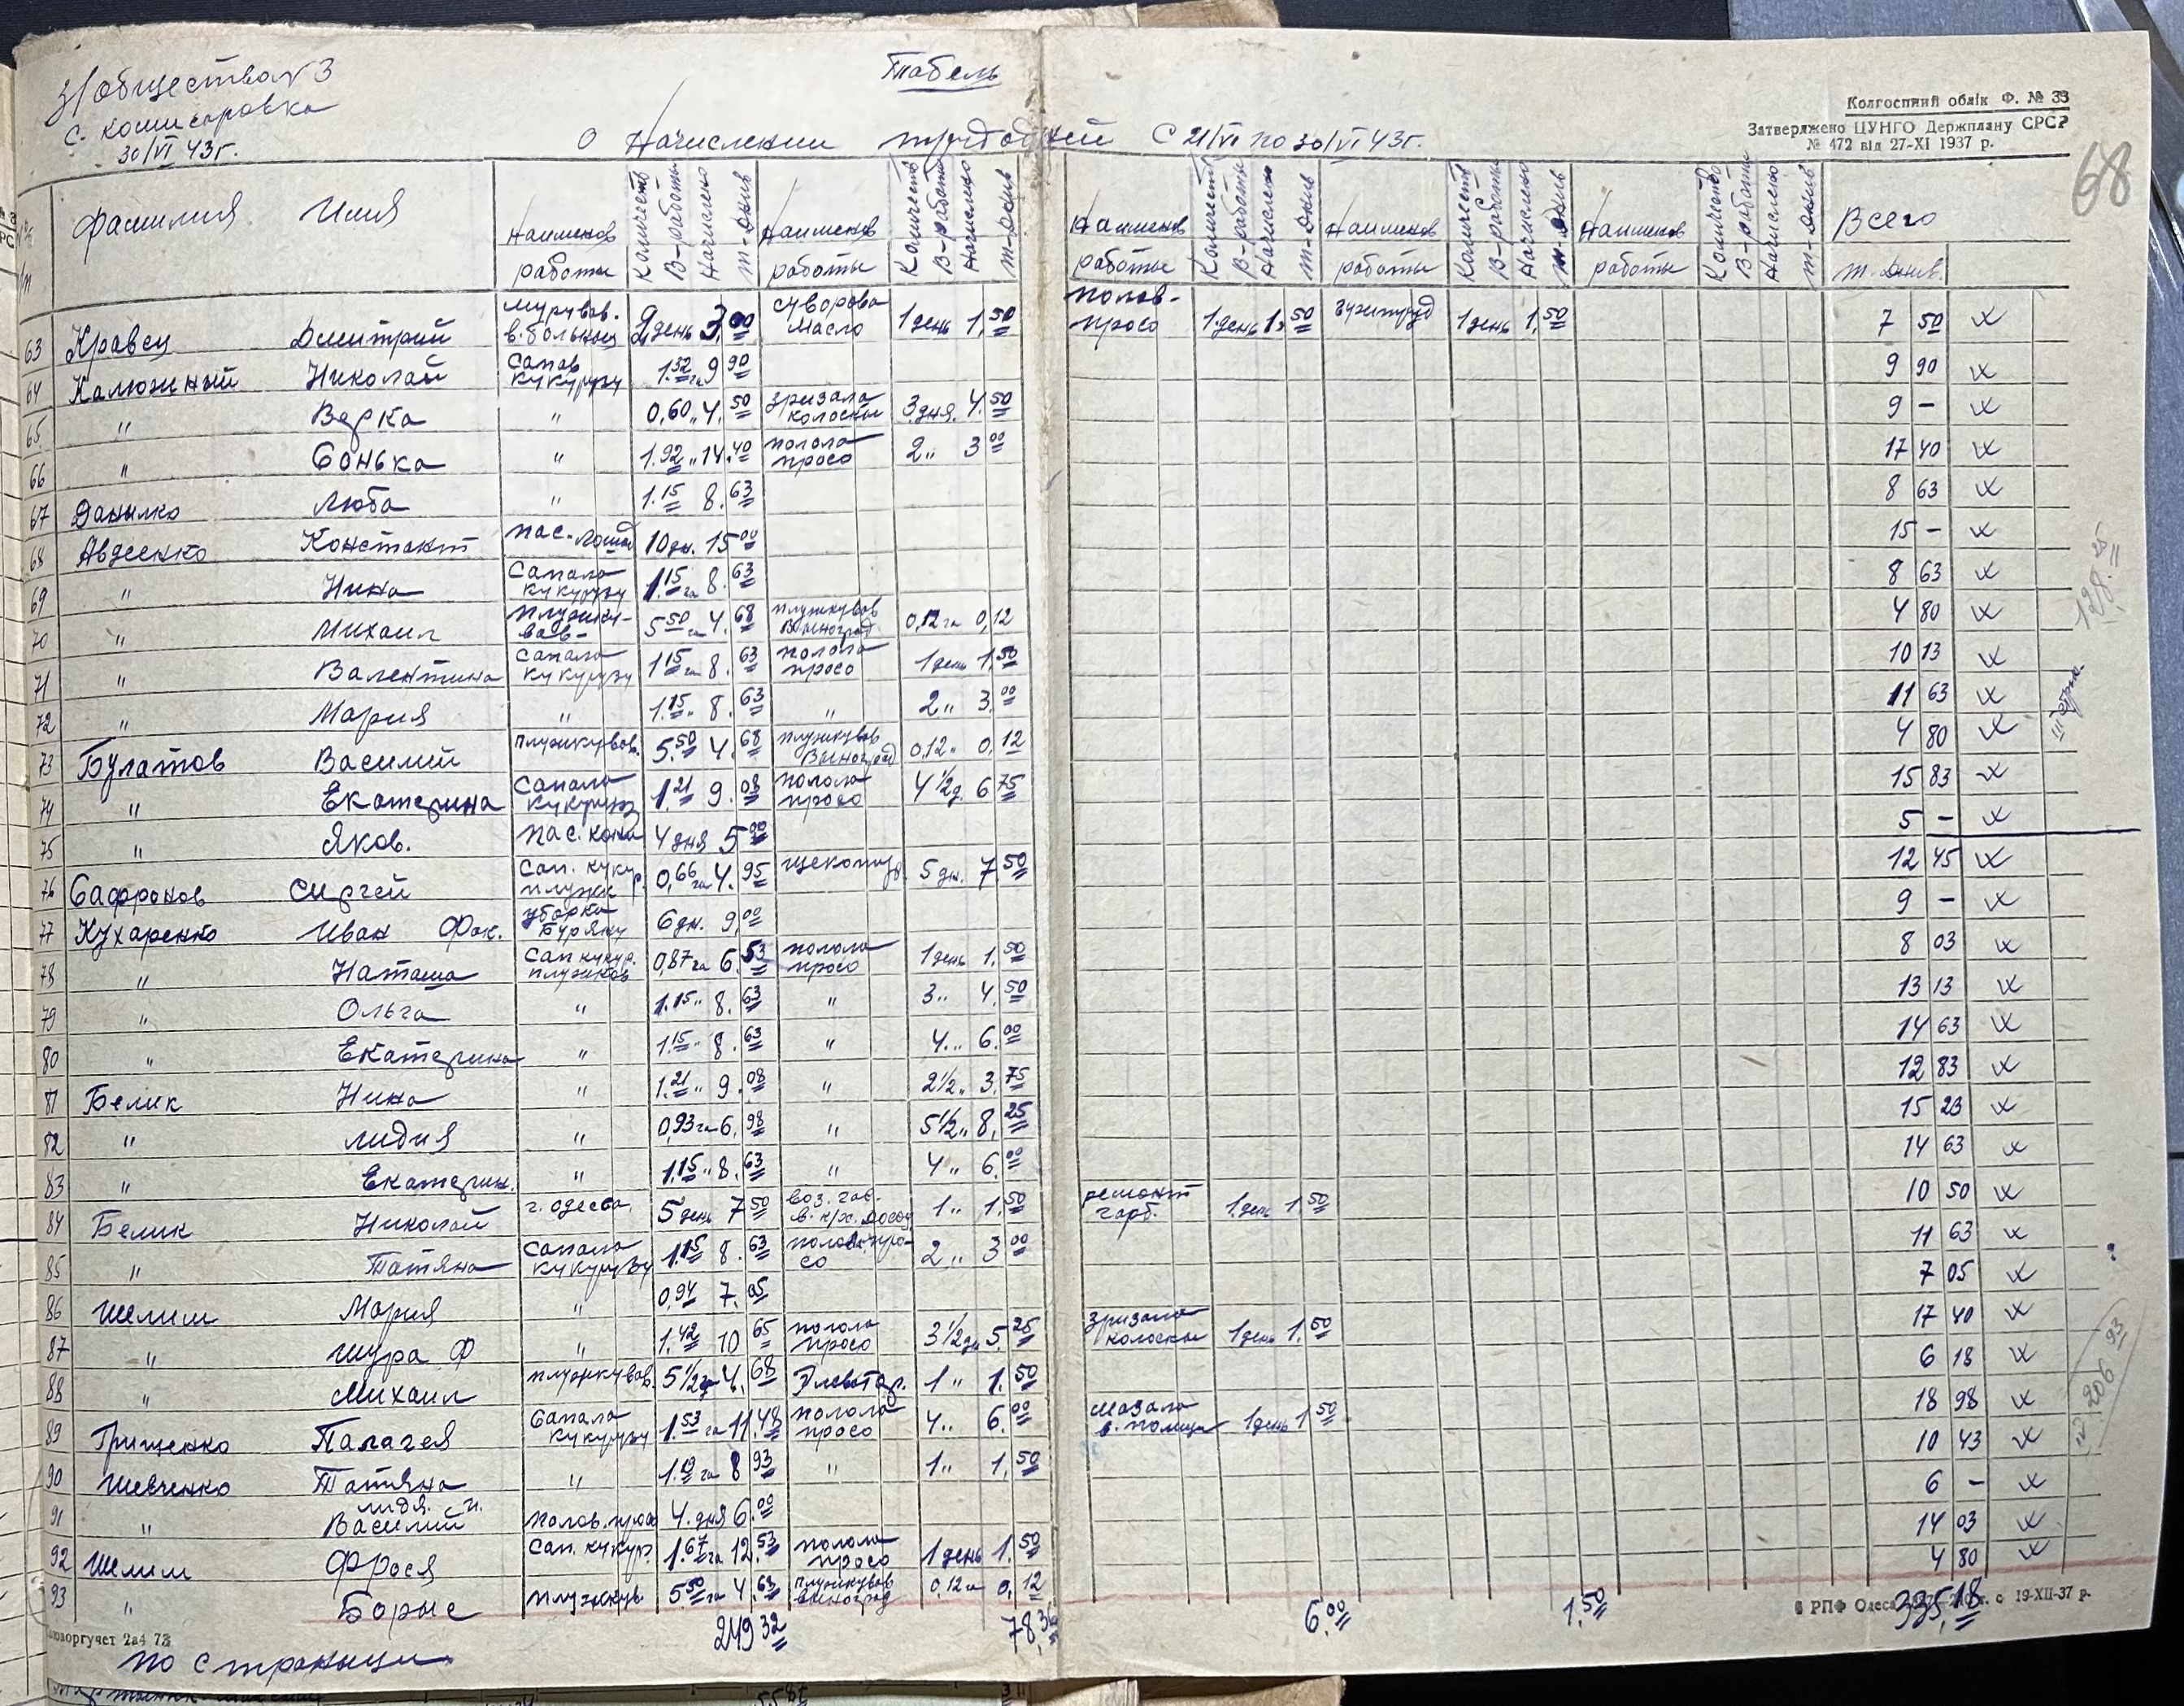 З/общества №3
с. Комисаровка
30/VI 43г.
Табель
О Начислении трудодней С 21/VI по 30/VI 43г.
Колгоспний облік Ф. № 33
Затверджено ЦУНГО Держплану СРСР
№ 472 від 27-XI 1937 р.
68
Фамилия Имя Наименов работы Количеств В-работы Начислено т-днив Наименов работы Количеств В-работы Начислено т-днив Наименов работы Количеств В-работы Начислено т-днив Наименов работы Количеств В-работы Начислено т-днив Наименов работы Количество В-работы Начислено т-днив Всего т. днив.
63 Кравец Дмитрий 2 день 3,00 масло 1 день 1,50 полов- просо 1 день 1,50 1 день 1,50 7 50
64 Калюжный Николай Сапав кукурузу 1.32 га 9 90 9 90
65 " Верка " 0,60 „ 4,50 зризала колоски 3 дня. 4.50 9 —
66 " Сонька " 1.92 „ 14.40 полола просо 2 „ 3 00 17 40
67 Данылко Люба " 1.15 8.63 8 63
68 Авдеенко Констант пас. лошад 10 дн. 15 00 15 —
69 " Нина Сапала кукурузу 1.15 га 8.63 8 63
70 " Михаил плужку- вав- 5 50 га 4.68 плужкував Виноград 0,12 га 0,12 4 80
71 " Валентина Сапала кукурузу 1 15 га 8.63 полола просо 1 день 1.50 10 13
72 " Мария " 1.15 „ 8.63 " 2 „ 3.00 11 63
73 Булатов Василий плужкував. 5.50 4.68 плужкував Виноград 0,12 „ 0,12 4 80
74 " Екатерина Сапала кукуруз 1.21 9.08 полола просо 4 1/2 д. 6 75 15 83
75 " Яков. пас. коня 4 дня 5 00 5 —
76 Сафронов Сиргей Сап. кукур. плужк 0,66 га 4.95 5 дн. 7.50 12 45
77 Кухаренко Иван Фок. уборка Буряну 6 дн. 9,00 9 —
78 " Наташа Сап кукур. плужков 0,87 га 6.53 полола просо 1 день 1.50 8 03
79 " Ольга " 1.15 „ 8.63 " 3 „ 4.50 13 13
80 " Екатерина " 1.15 „ 8.63 " 4 „ 6.00 14 63
81 Белик Нина " 1.21 „ 9.08 " 2 1/2 „ 3.75 12 83
82 " Лидия " 0,93 га 6,98 " 5 1/2 „ 8,25 15 23
83 " Екатерин. " 1.15 „ 8.63 " 4 „ 6.00 14 63
84 Белик Николай г. Одесса. 5 день 7 50 1 „ 1.50 ремонт гарб. 1 день 1 50 10 50
85 " Татяна Сапала кукурузу 1.15 8.63 полола про- со 2 „ 3 00 11 63
86 Шелим Мария " 0,94 7.05 7 05
87 " Шура Ф " 1.42 10 65 полола просо 3 1/2 дн 5.25 зризала колоски 1 день 1.50 17 40
88 " Михаил плужкував. 5 1/2 га 4.68 Элеватор. 1 „ 1.50 6 18
89 Грищенко Палагея Сапала кукурузу 1.53 га 11.48 полола просо 4 „ 6.00 мазала 1 день 1 50 18 98
90 Шевченко Татяна " 1.19 га 8 93 " 1 „ 1.50 10 43
91 " Лидя. Василий полов. просо 4 дня 6.00 6 —
92 Шелим Фрося Сап. кукур. 1.67 га 12.53 полола просо 1 день 1.50 14 03
93 " Борыс плужкув. 5 50 га 4.68 плужкував виноград 0,12 га 0,12 4 80
249 32 78,36 6.00 1,50 335,18
128.25
206 93
Союзоргучет 2а4 73
РПФ Одеса 19-XII-37 р.
По странице